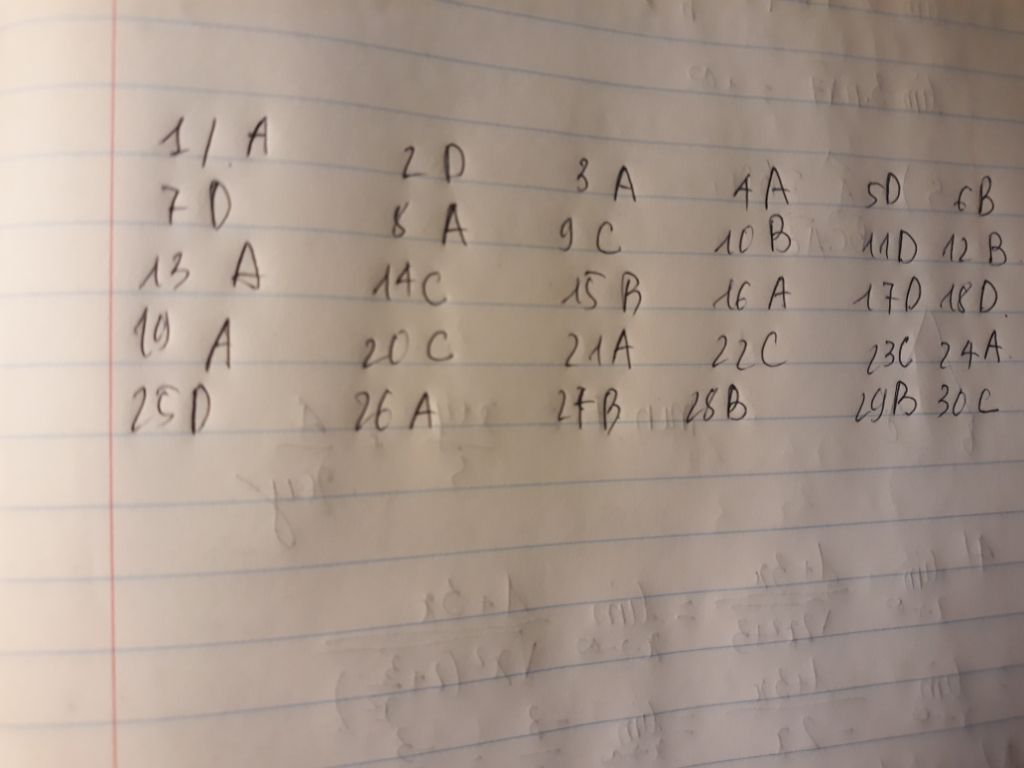 1/. A 2 D 3 A 4 A 5D 6B
7 D 8 A 9 C 10 B 11D 12 B
13 A 14C 15 B 16 A 17D 18D
19 A 20 C 21A 22C 23C 24A
25D 26 A 27B 28B 29B 30C